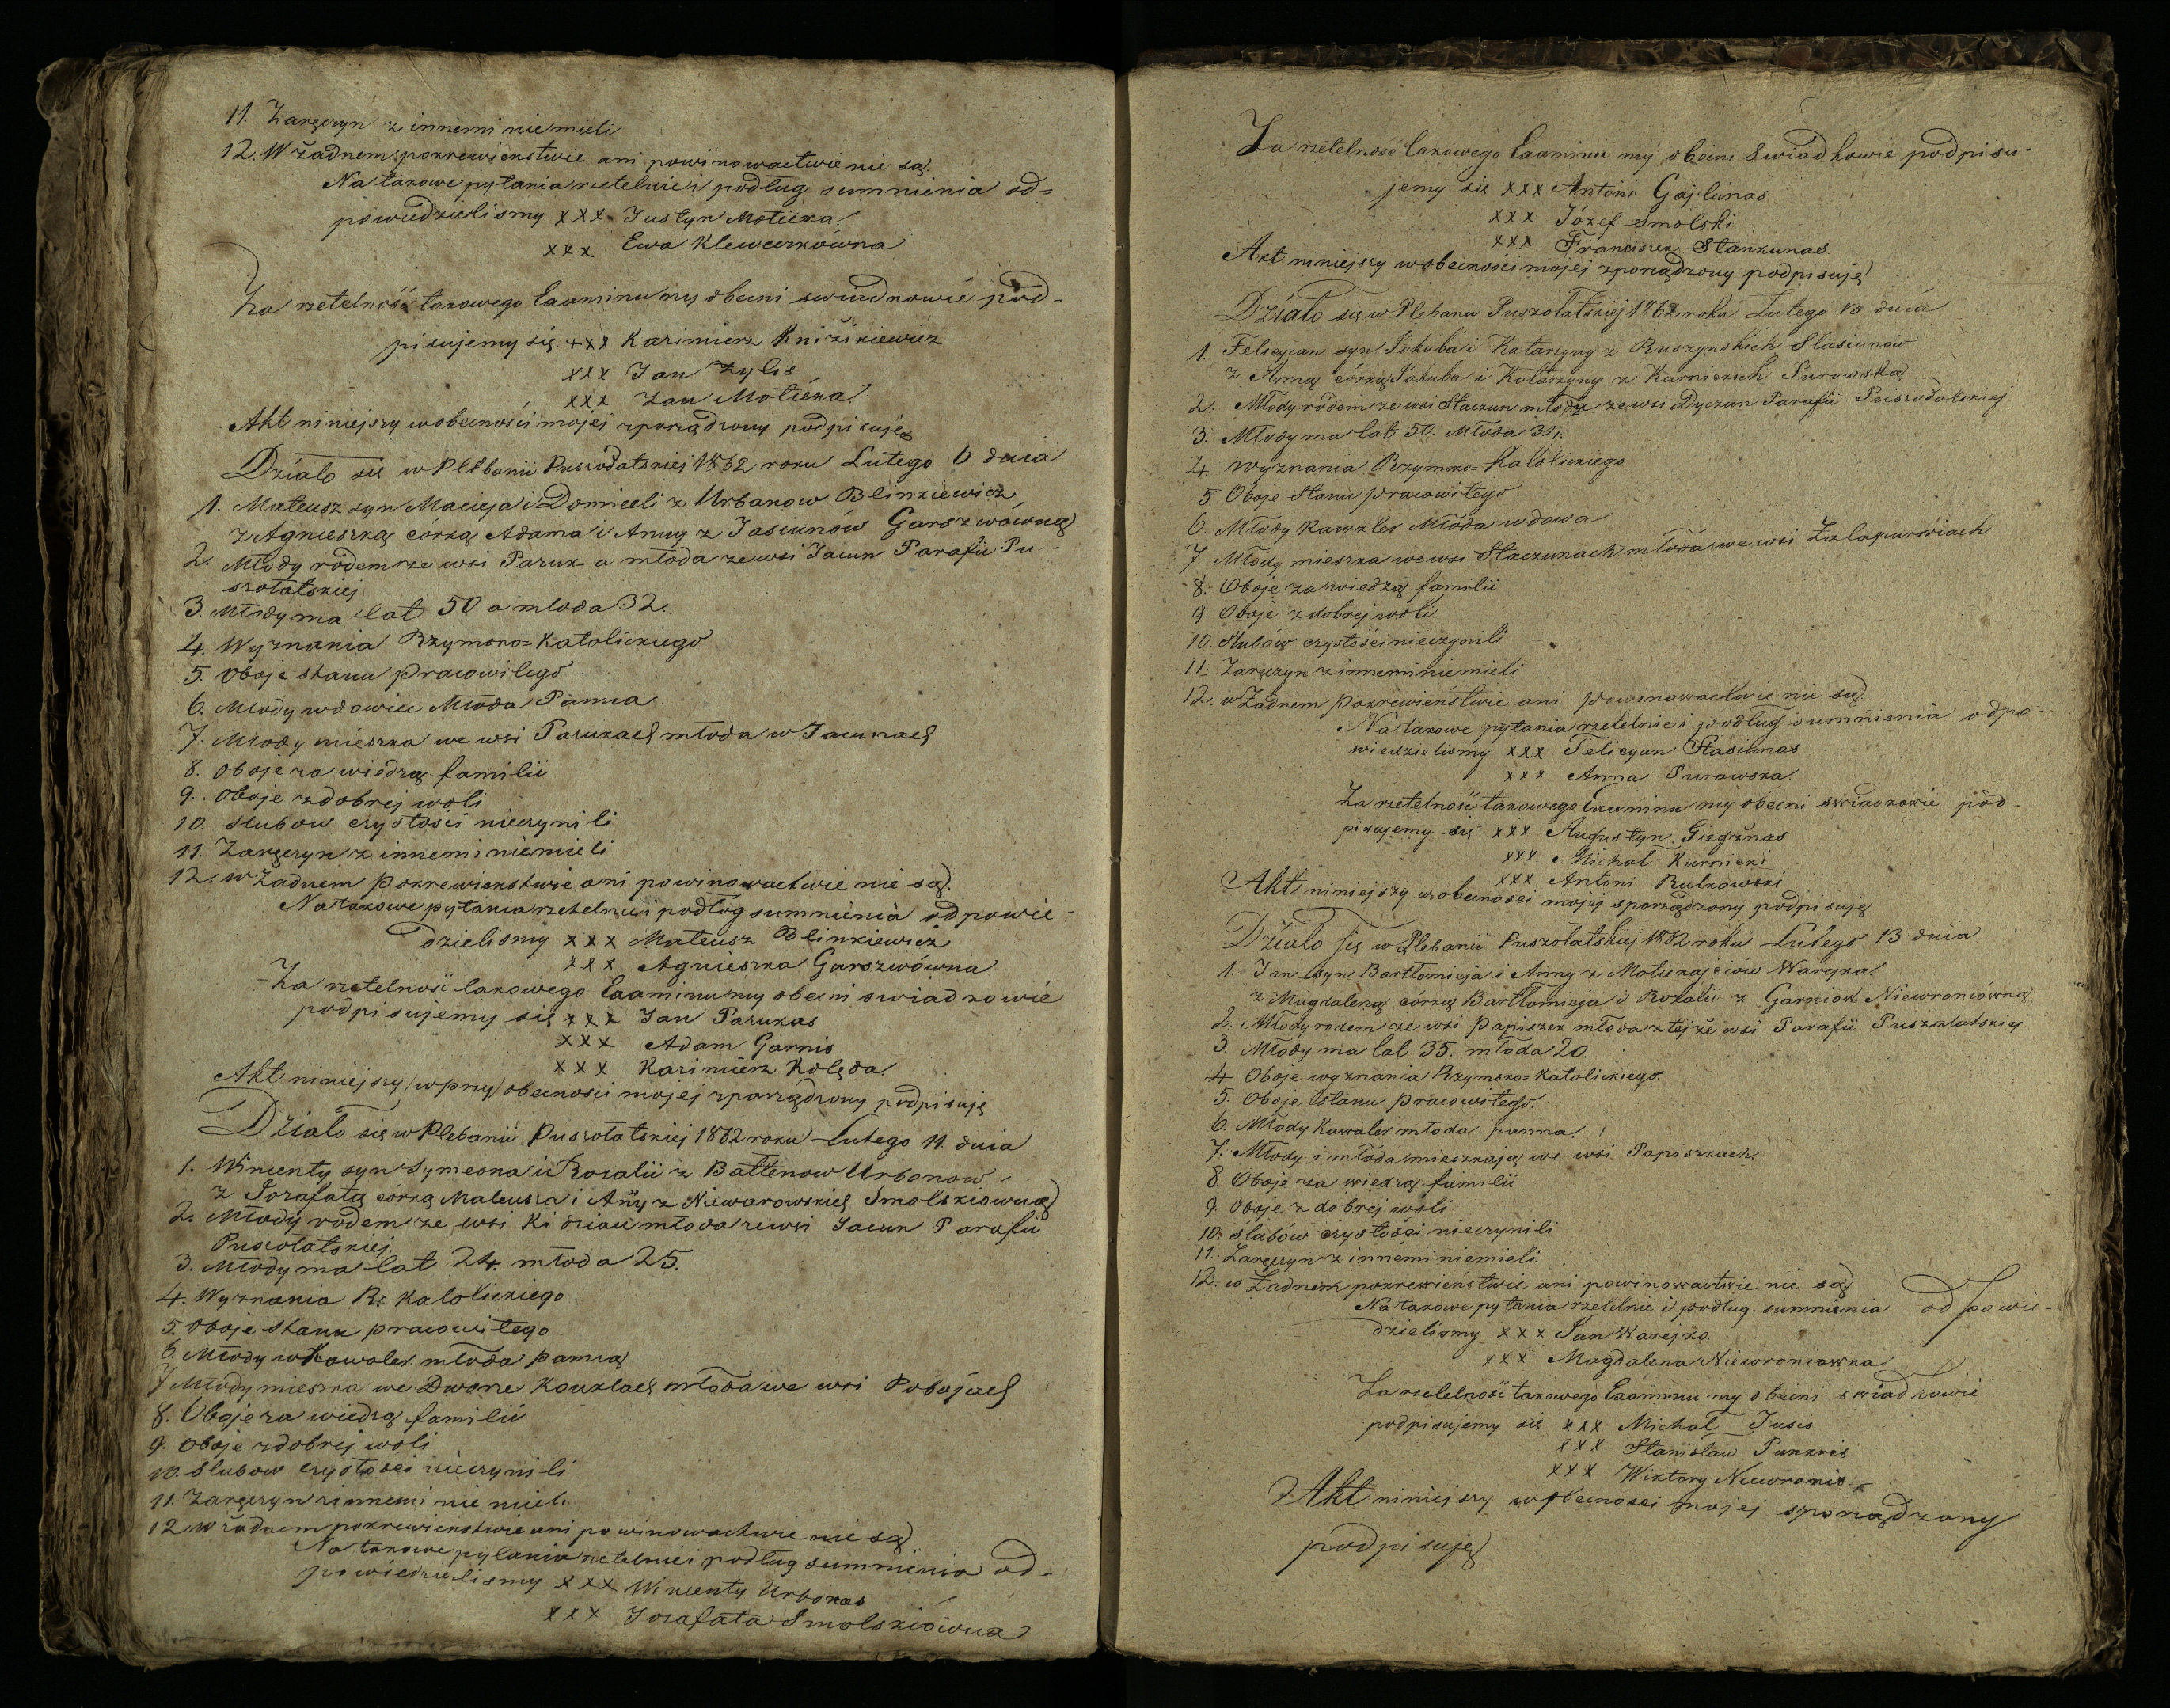 11. Zaręczyn z innemi niemieli
12. W żadnem pokrewienstwie ani powinowactwie nie są.
Na takowe pytania rzetelnie i podług sumnienia od=
powiedzielismy xxx Justyn Motieka
xxx Ewa Kleweczkówna
Za rzetelność takowego Examinu my obecni swiadkowie pod-
pisujemy się xxx Kazimierz Kniżikiewicz
xxx Jan Zylis
xxx Jan Motieka
Akt niniejszy wobecności mojej zporządzony podpisuję
Działo się w Plebanii Puszołatskiej 1862 roku Lutego 6 dnia
1. Mateusz syn Macieja i Domiceli z Urbanow Blinkiewicz
z Agnieszką córką Adama i Anny z Jasiunów Garszwówną
2. Młody rodem ze wsi Paruk a młoda ze wsi Jacun Parafii Pu-
szołatskiej
3. Młody ma lat 50 a młoda 32.
4. Wyznania Rzymsko=Katolickiego
5. Oboje stanu pracowitego
6. Młody wdowiec Młoda Panna
7. Młody mieszka we wsi Parukach młoda w Jacunach
8. Oboje za wiedzą familii
9. Oboje z dobrej woli
10. Slubow czystosci nieczynili
11. Zaręczyn z innemi niemieli
12. w Żadnem pokrewienstwie ani powinowactwie nie są.
Na takowe pytania rzetelnie i podlóg sumnienia odpowie-
dzielismy xxx Mateusz Blinkiewicz
xxx Agnieszka Garszwówna
Za rzetelność takowego Examinu my obecni swiadkowie
podpisujemy się xxx Jan Parukas
xxx Adam Garnis
xxx Kazimierz Kolęda
Akt niniejszy /wprzy/ obecnosci mojej zporządzony podpisuję
Działo się w Plebanii Puszołatskiej 1862 roku Lutego 11 dnia
1. Wincenty syn Symeona i Rozalii z Baltenow Urbonow
z Jozafatą córką Mateusza i Anny z Niewarowskich Smolskiowną
2. Młody rodem ze wsi młoda ze wsi Jacun Parafii
Puszołatskiej.
3. Młody ma lat 24. młoda 25.
4. Wyznania Rz Katolickiego
5. Oboje stanu pracowitego
6. Młody Kawaler młoda panną
7 Młody mieszka we Dworze młoda we wsi Pobojach
8. Oboje za wiedzą familii
9. Oboje z dobrej woli
10. Slubow czystosci nieczynili
11. Zaręczyn z innemi nie mieli
12 w żadnem pokrewienstwie ani powinowactwie nie są
Na takowe pytania rzetelnie i podług sumnienia od-
powiedzielismy xxx Wincenty Urbonas
xxx Jozafata Smolskiówna
Za rzetelność takowego Examinu my obecni Swiadkowie podpisu-
jemy się xxx Antoni Gajlunas
xxx Józef Smolski
xxx Franciszek Stankunas
Akt niniejszy w obecności mojej zporządzony podpisuję
Działo się w Plebanii Puszołatskiej 1862 roku Lutego 13 dnia
1. Felicyan syn Jakuba i Katarzyny z Ruszynskich Stasiunow
z Anną córką Jakuba i Katarzyny z Kurnickich Purowską
2. Młody rodem ze wsi Staczun młoda ze wsi Dyczun Parafii Puszołatskiej
3. Młody ma lat 50. Młoda 34.
4. Wyznania Rzymsko=Katolickiego
5. Oboje Stanu pracowitego
6. Młody Kawaler Młoda wdowa
7 Młody mieszka we wsi Staczunach młoda we wsi
8. Oboje za wiedzą familii
9. Oboje z dobrej woli
10. Slubów czystości nieczynili
11. Zaręczyn z innemi niemieli
12. w Żadnem pokrewieństwie ani powinowactwie nie są
Na takowe pytania rzetelnie i podług sumnienia odpo-
wiedzielismy xxx Felicyan Stasiunas
xxx Anna Purowska
Za rzetelność takowego Examinu my obecni swiadkowie pod-
pisujemy się xxx Augustyn Giegżnas
xxx Michał Kurnicki
xxx Antoni Rutkowski
Akt niniejszy w obecnosci mojej sporządzony podpisuję
Działo się w Plebanii Puszołatskiej 1862 roku Lutego 13 dnia
1. Jan syn Bartłomieja i Anny z Motiekajciów Warejka
z Magdaleną córką Bartłomieja i Rozalii z Garniow Niewroniówną
2. Młody rodem ze wsi Papiszek młoda z tejże wsi Parafii Puszałatskiej
3. Młody ma lat 35. młoda 20.
4. Oboje wyznania Rzymsko=Katolickiego.
5. Oboje stanu pracowitego.
6. Młody Kawaler młoda panna.
7. Młody i młoda mieszkają we wsi Papiszkach.
8. Oboje za wiedzą familii
9. Oboje z dobrej woli
10. slubów czystości nieczynili
11. Zaręczyn z innemi niemieli.
12. w Żadnem pokrewieństwie ani powinowactwie nie są
Na takowe pytania rzetelnie i podług sumnienia odpowie-
dzielismy xxx Jan Warejko
xxx Magdalena Niewroniowna
Za rzetelność takowego Examinu my obecni swiadkowie
podpisujemy się xxx Michał Jusis
xxx Stanisław Punkris
xxx Wiktory Niewronis
Akt niniejszy w obecnosci mojej sporządzony
podpisuję